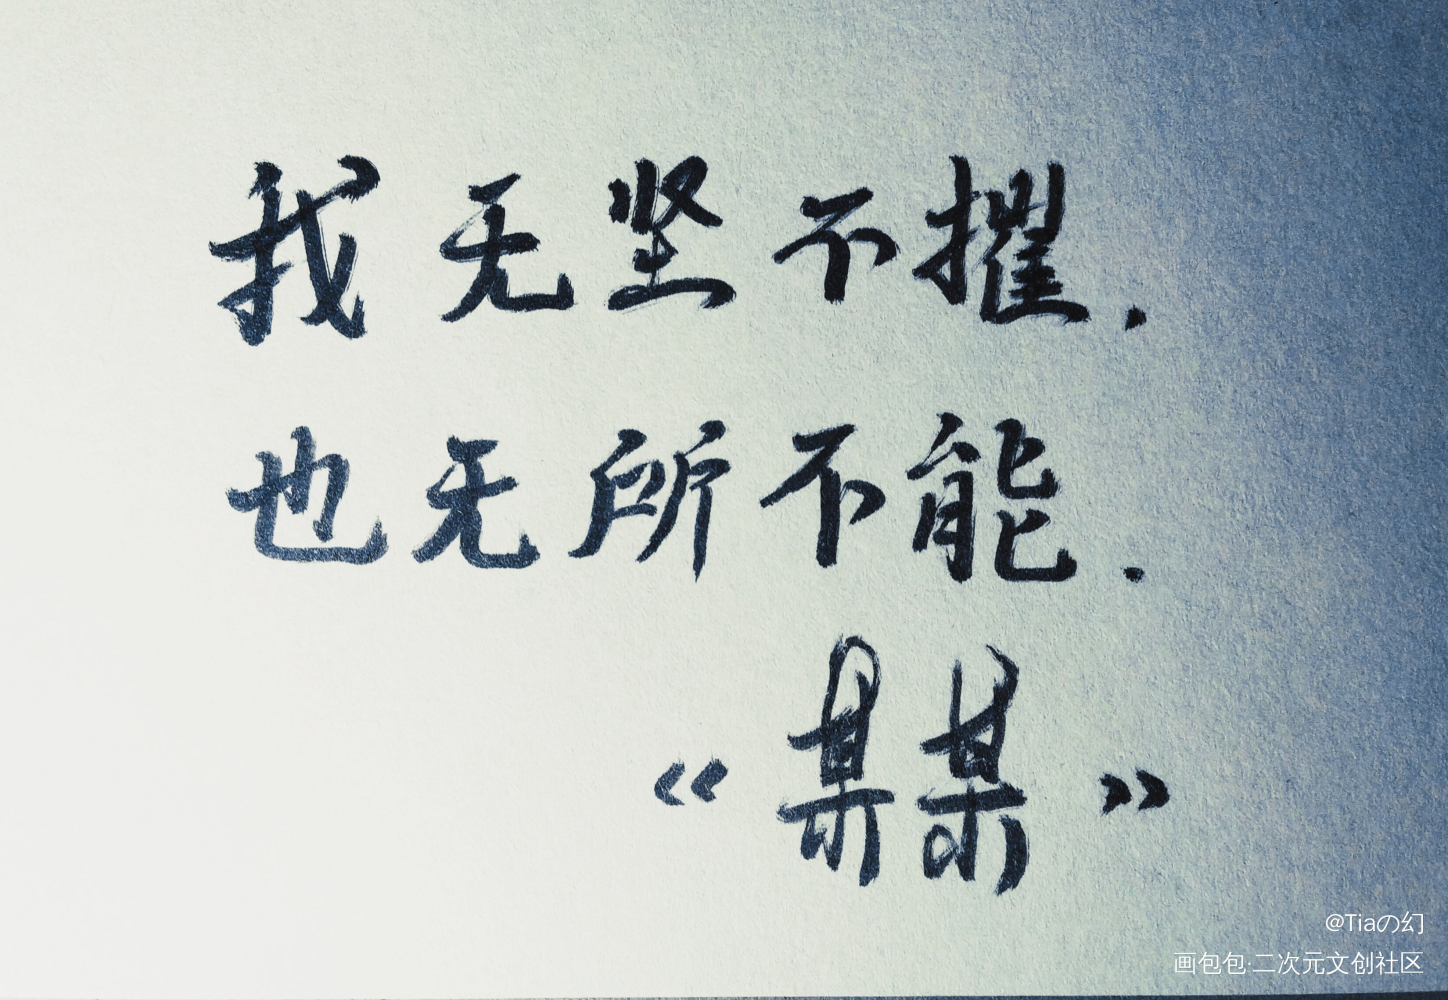 我无坚不擢.
也无所不能.
《某某》
@Tiaの幻
画包包·二次元文创社区